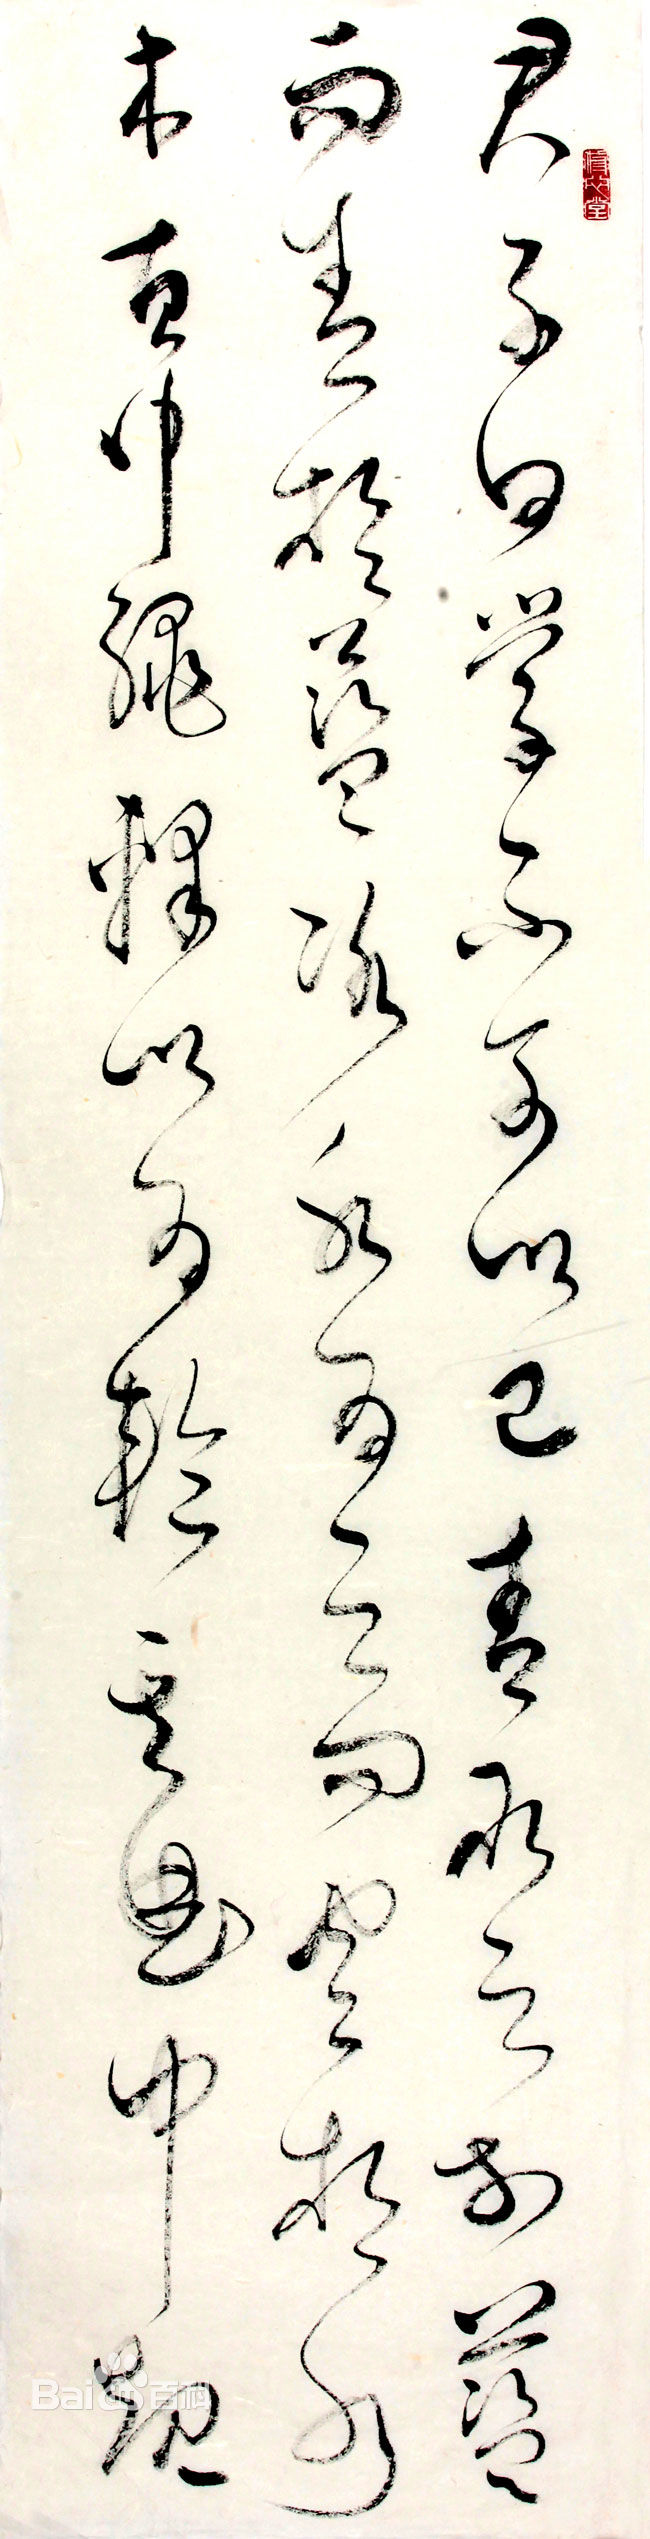 君子曰學不可以已青取之於藍
而青於藍冰水為之而寒於水
木直中繩輮以為輪其曲中規
Bai百科